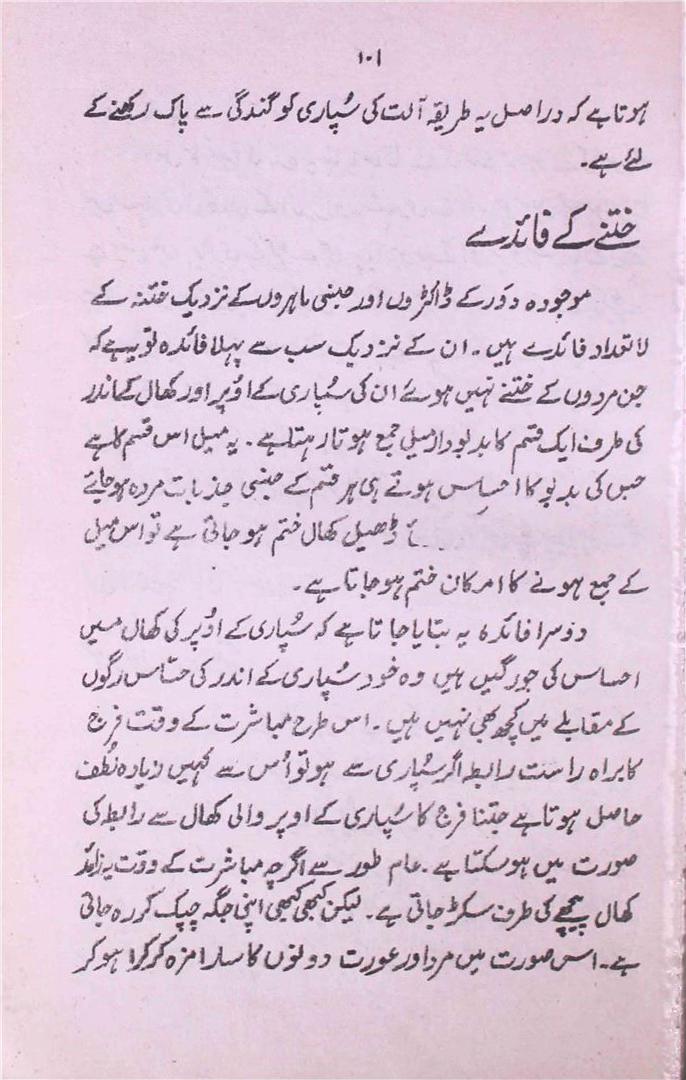 ۱۰۱
ہوتا ہے کہ دراصل یہ طریقہ آلت کی سُپاری کو گندگی سے پاک رکھنے کے
لئے ہے۔
ختنے کے فائدے
موجودہ دَور کے ڈاکٹروں اور جنسی ماہروں کے نزدیک ختنہ کے
لاتعداد فائدے ہیں۔ ان کے نزدیک سب سے پہلا فائدہ تو یہ ہے کہ
جن مردوں کے ختنے نہیں ہوئے ان کی سُپاری کے اوُپر اور کھال کے اندر
کی طرف ایک قسم کا بدبودار میل جمع ہوتا رہتا ہے۔ یہ میل اس قسم کا ہے
جس کی بدبو کا احساس ہوتے ہی ہر قسم کے جنسی جذبات مردہ ہو جاتے
ڈھیل کھال ختم ہو جاتی ہے تو اس میل
کے جمع ہونے کا امرکان ختم ہو جاتا ہے۔
دوسرا فائدہ یہ بتایا جاتا ہے کہ سُپاری کے اوُپر کی کھال میں
احساس کی جو رگیں ہیں وہ خود سُپاری کے اندر کی حسّاس رگوں
کے مقابلے میں کچھ بھی نہیں ہیں۔ اس طرح مباشرت کے وقت فرج
کا براہ راست رابطہ اگر سُپاری سے ہو تو اُس سے کہیں زیادہ لُطف
حاصل ہوتا ہے جتنا فرج کا سُپاری کے اوپر والی کھال سے رابطہ کی
صورت میں ہو سکتا ہے۔ عام طور سے اگرچہ مباشرت کے وقت یہ زائد
کھال پیچھے کی طرف سکڑ جاتی ہے۔ لیکن کبھی کبھی اپنی جگہ چپک کر رہ جاتی
ہے۔ اس صورت میں مرد اور عورت دونوں کا سارا مزہ کرکرا ہو کر